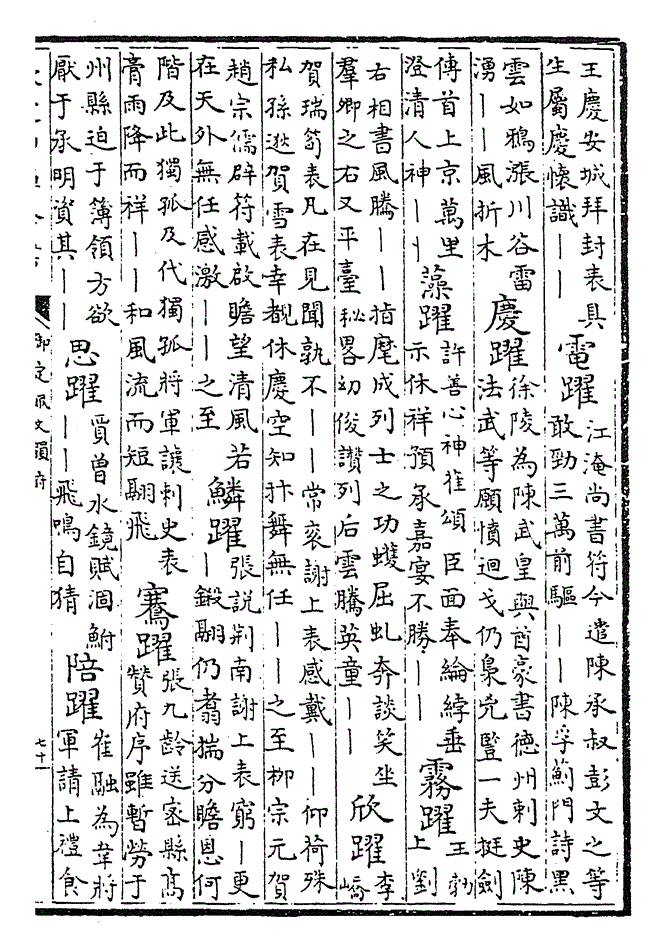 王慶安城拜封表具
生屬慶懷識丨丨
電躍
江淹尚書符今遣陳承叔彭文之等
敢勁三萬前驅丨丨陳孚薊門詩黑
雲如鴉漲川谷雷
湧丨丨風折木
慶躍
徐陵為陳武皇與酋豪書德州刺史陳
法武等願憤迴戈仍梟兇豎一夫挺劍
傳首上京萬里
澄清人神丨丨
藻躍
許善心神雀頌臣面奉綸綍垂
示休祥預承嘉宴不勝丨丨
霧躍
王勃
上劉
右相書風騰丨丨指麾成列士之功蠖屈虬奔談笑坐
羣卿之右又平臺秘畧幼俊讚列后雲騰英童丨丨
欣躍
李
嶠
賀瑞筍表凡在見聞孰不丨丨常衮謝上表感戴丨丨仰荷殊
私孫逖賀雪表幸覩休慶空知抃舞無任丨丨之至柳宗元賀
趙宗儒辟符載啟瞻望清風若
在天外無任感激丨丨之至
鱗躍
張說荆南謝上表窮丨更
丨鍛翮仍翥揣分瞻恩何
階及此獨孤及代獨孤將軍讓刺史表
膏雨降而祥丨丨和風流而短翮飛
騫躍
張九齡送密縣高
贊府序雖暫勞于
州縣迫于簿領方欲
厭于承明資其丨丨
思躍
賈曾水鏡賦涸鮒
丨丨飛鳴自猜
陪躍
崔融為韋將
軍請上禮食
御定佩文韻府
七十一